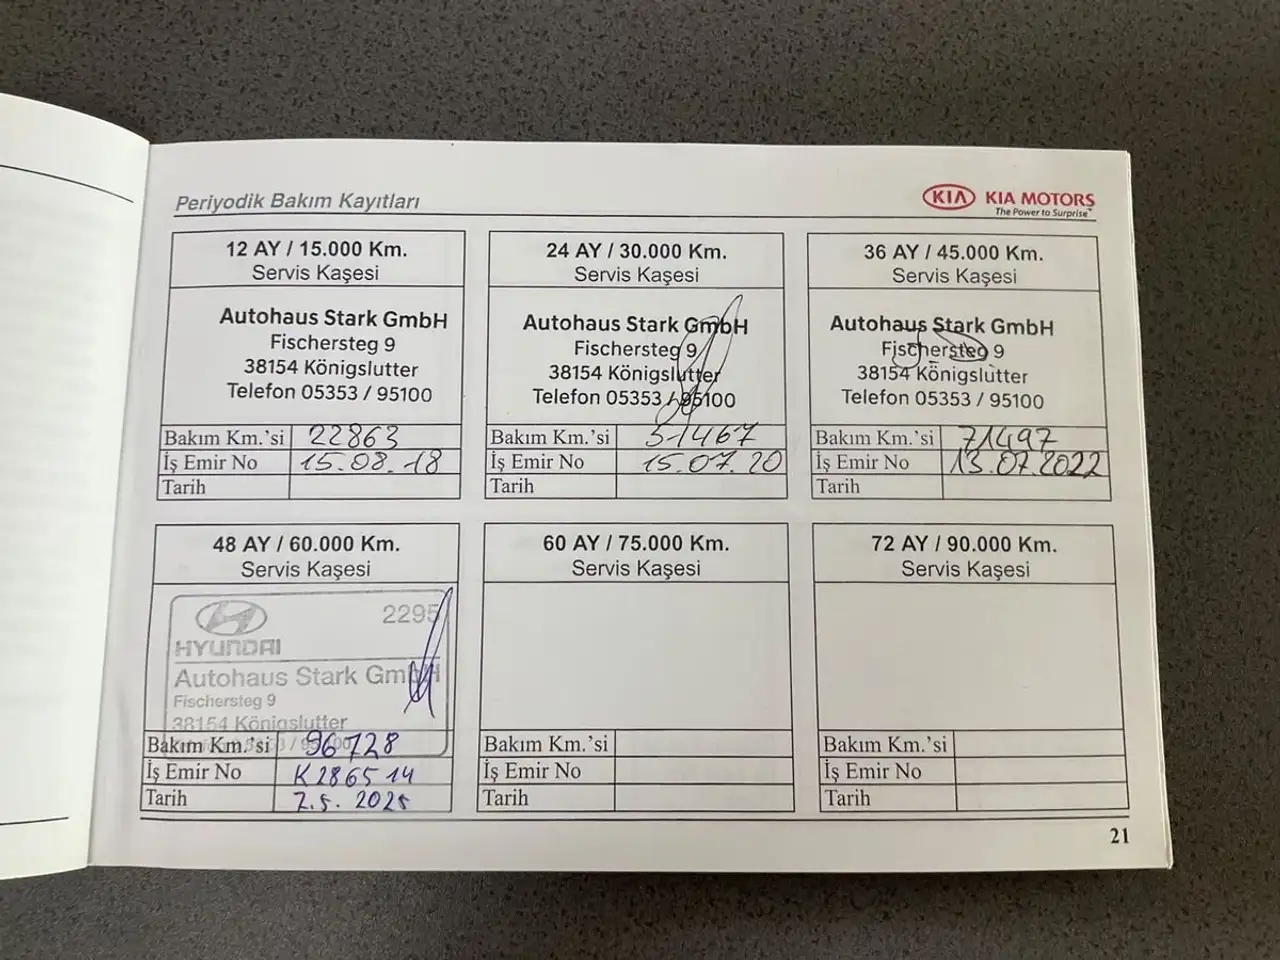 Periyodik Bakım Kayıtları
KIA KIA MOTORS
The Power to Surprise™
12 AY / 15.000 Km.
Servis Kaşesi
Autohaus Stark GmbH
Fischersteg 9
38154 Königslutter
Telefon 05353 / 95100
Bakım Km.'si 22863
İş Emir No 15.08.18
Tarih
24 AY / 30.000 Km.
Servis Kaşesi
Autohaus Stark GmbH
Fischersteg 9
38154 Königslutter
Telefon 05353 / 95100
Bakım Km.'si 51467
İş Emir No 15.07.20
Tarih
36 AY / 45.000 Km.
Servis Kaşesi
Autohaus Stark GmbH
Fischersteg 9
38154 Königslutter
Telefon 05353 / 95100
Bakım Km.'si 71497
İş Emir No 13.07.2022
Tarih
48 AY / 60.000 Km.
Servis Kaşesi
2295
HYUNDAI
Autohaus Stark GmbH
Fischersteg 9
38154 Königslutter
Bakım Km.'si 96728
İş Emir No K286514
Tarih 7.5.2025
60 AY / 75.000 Km.
Servis Kaşesi
Bakım Km.'si
İş Emir No
Tarih
72 AY / 90.000 Km.
Servis Kaşesi
Bakım Km.'si
İş Emir No
Tarih
21